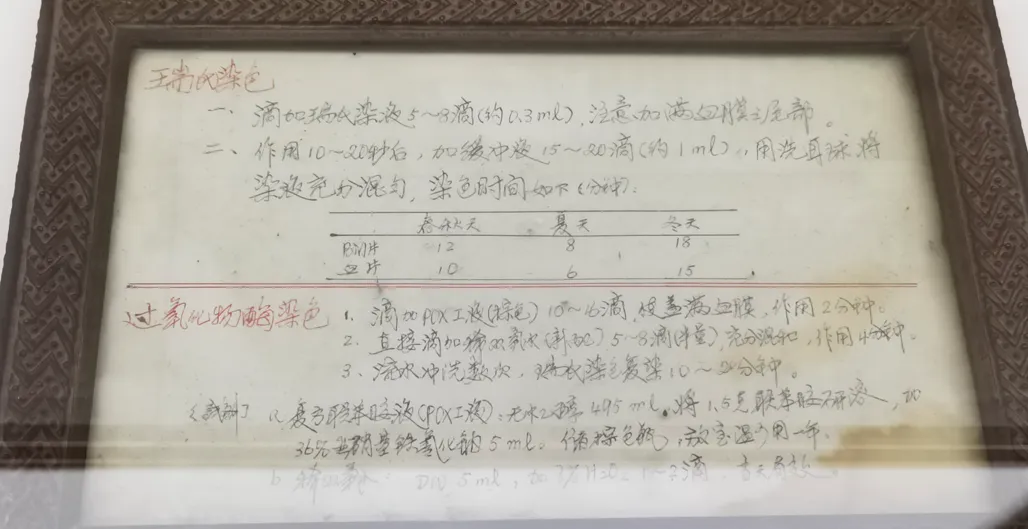 瑞氏染色
一、滴加瑞氏染液5~8滴(约0.3ml),注意加满血膜之尾部。
二、作用10~20秒后,加缓冲液15~20滴(约1ml),用洗耳球将
染液充分混匀,染色时间如下(分钟):
春秋天 夏天 冬天
B M片 12 8 18
血片 10 6 15
过氧化物酶染色 1. 滴加POX I液(棕色)10~16滴,使盖满血膜,作用2分钟。
2. 直接滴加稀双氧水(新配)5~8滴(半量),充分混和,作用4分钟。
3. 流水冲洗数次,瑞氏染色复染10~20分钟。
[试剂] a. 复方联苯胺液(POX I液):无水乙醇495ml,将1.5克联苯胺研溶,加
36%亚硝基铁氰化钠5ml。储棕色瓶,放室温可用一年。
b. DW 5ml,加3%H2O2 1~2滴